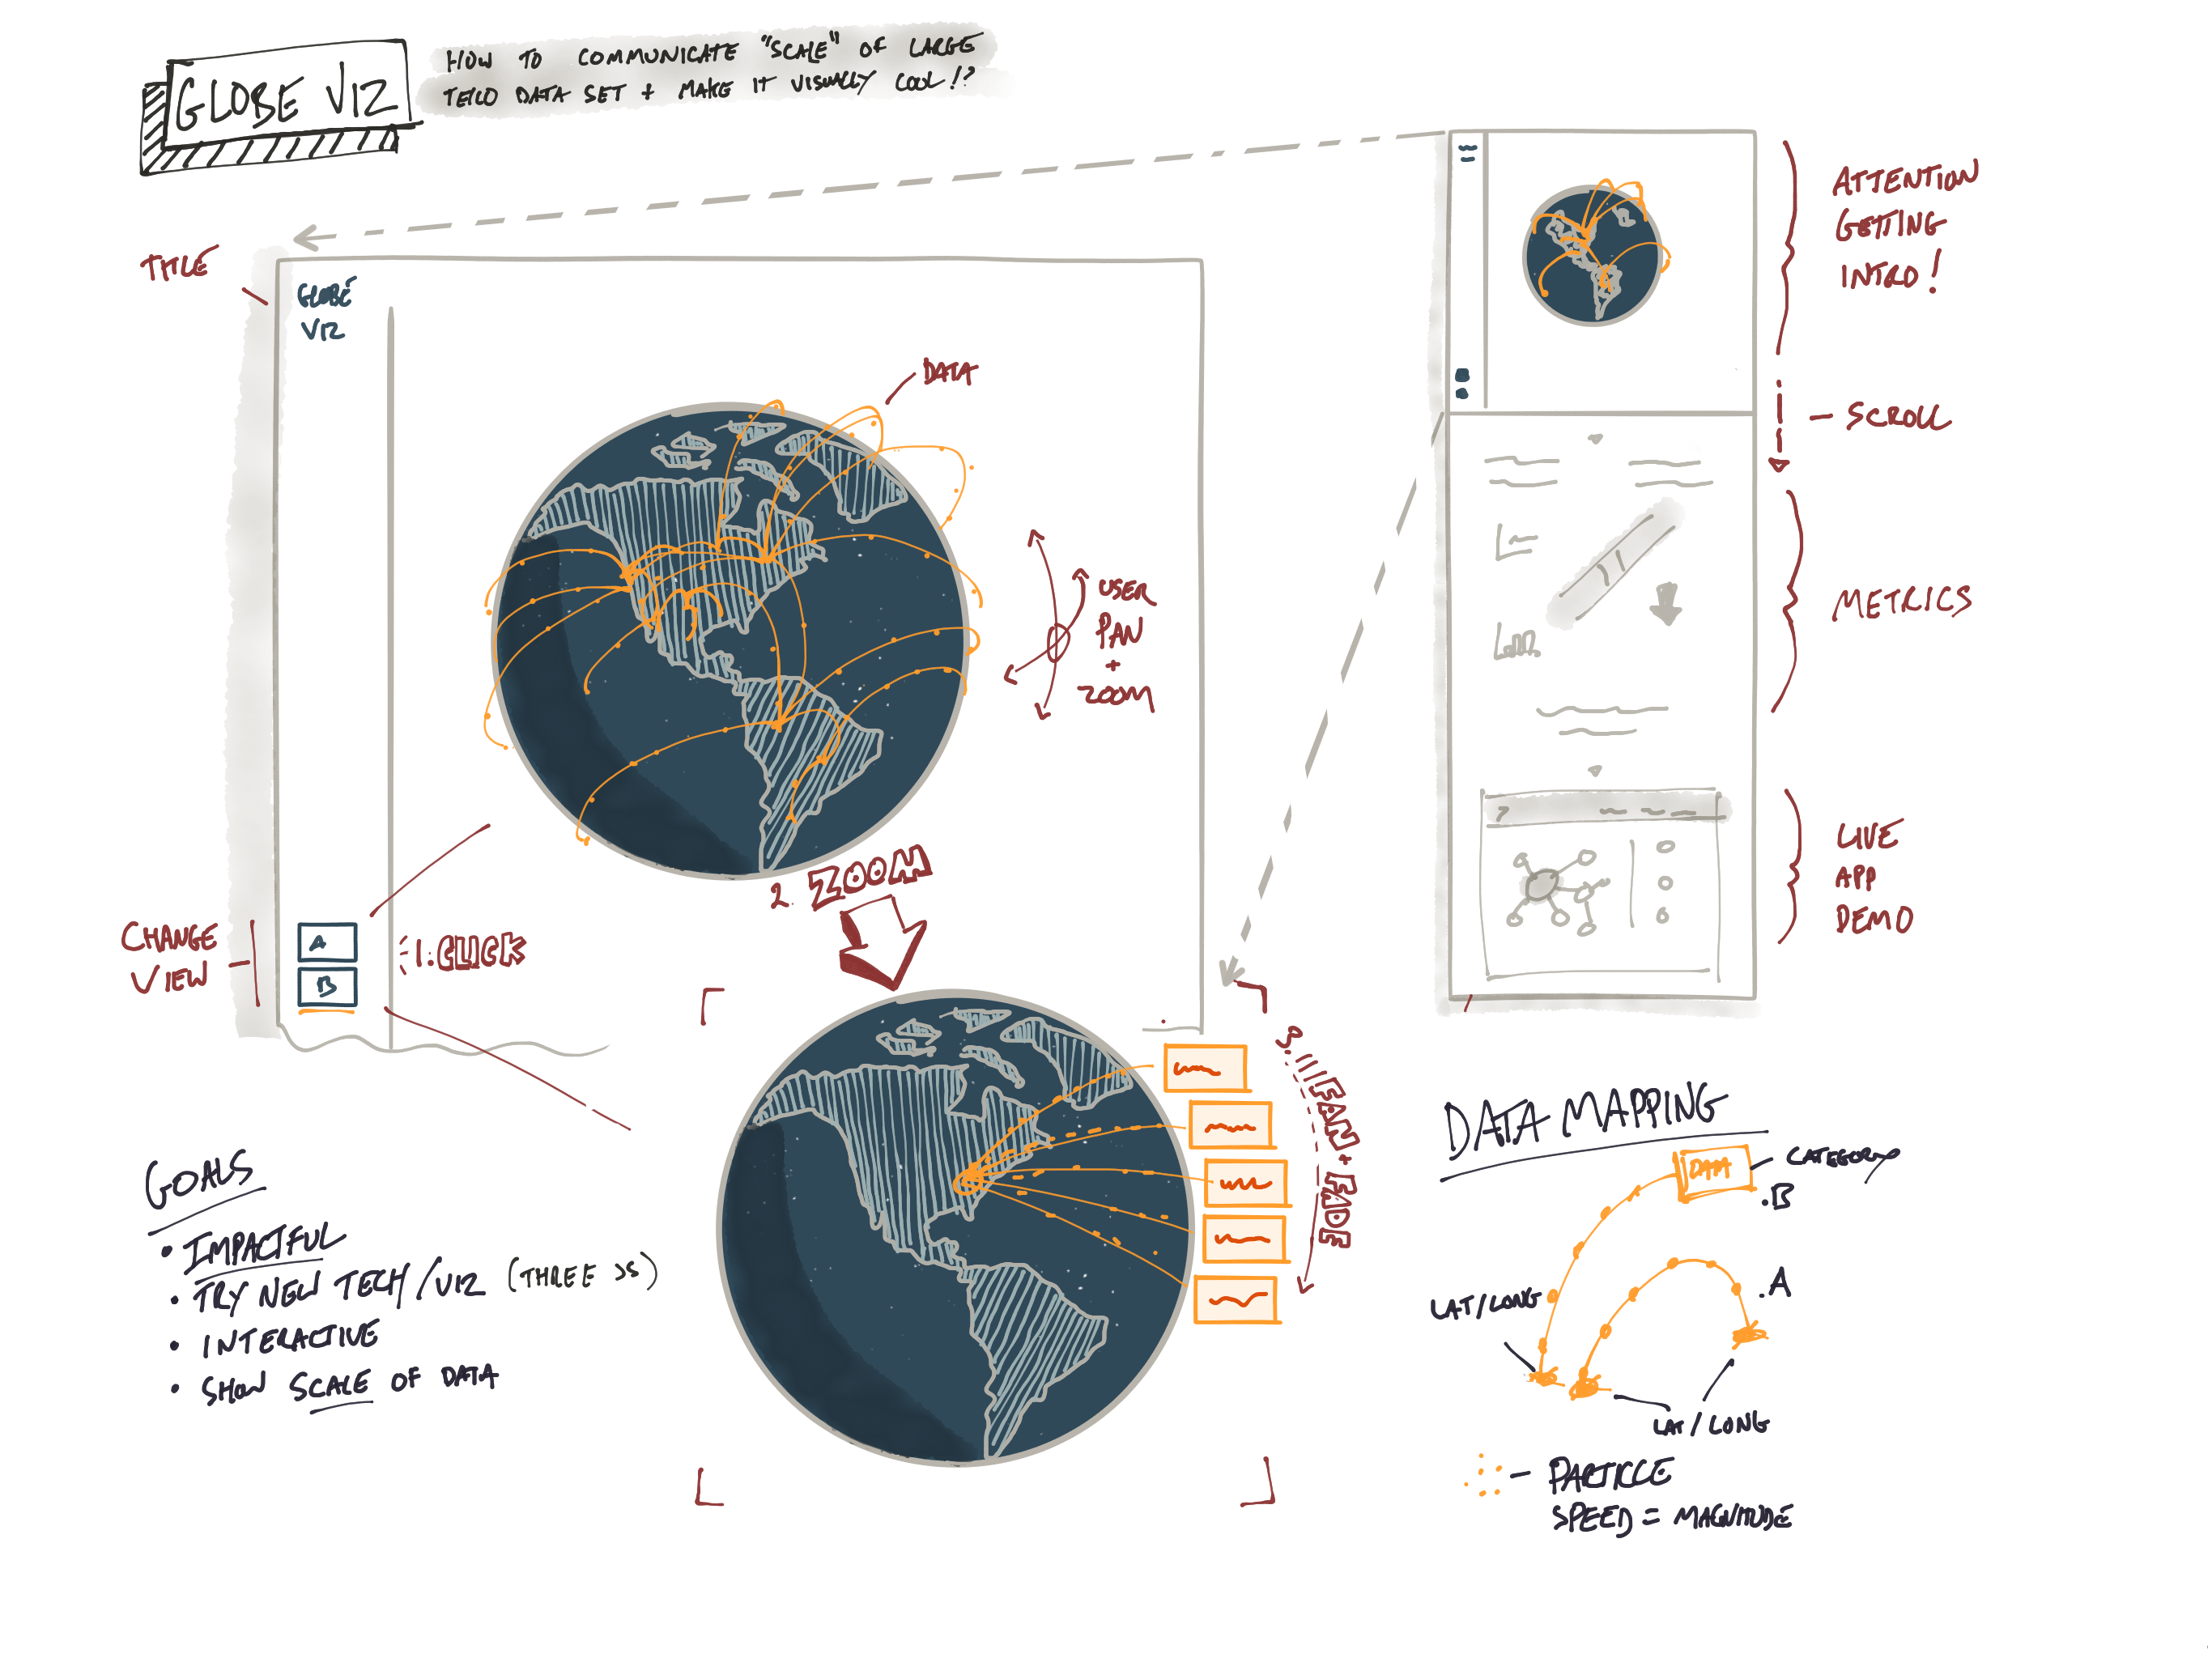 GLOBE VIZ
HOW TO COMMUNICATE "SCALE" OF LARGE
TELCO DATA SET + MAKE IT VISUALLY COOL!?
TITLE
GLOBE
VIZ
DATA
USER
PAN
+
ZOOM
CHANGE
VIEW
A
B
1. CLICK
2. ZOOM
3. FAN + FADE
ATTENTION
GETTING
INTRO!
- SCROLL
METRICS
LIVE
APP
DEMO
GOALS
• IMPACTFUL
• TRY NEW TECH/VIZ (THREE JS)
• INTERACTIVE
• SHOW SCALE OF DATA
DATA MAPPING
DATA
CATEGORY
.B
.A
LAT/LONG
LAT/LONG
- PARTICLE
SPEED = MAGNITUDE